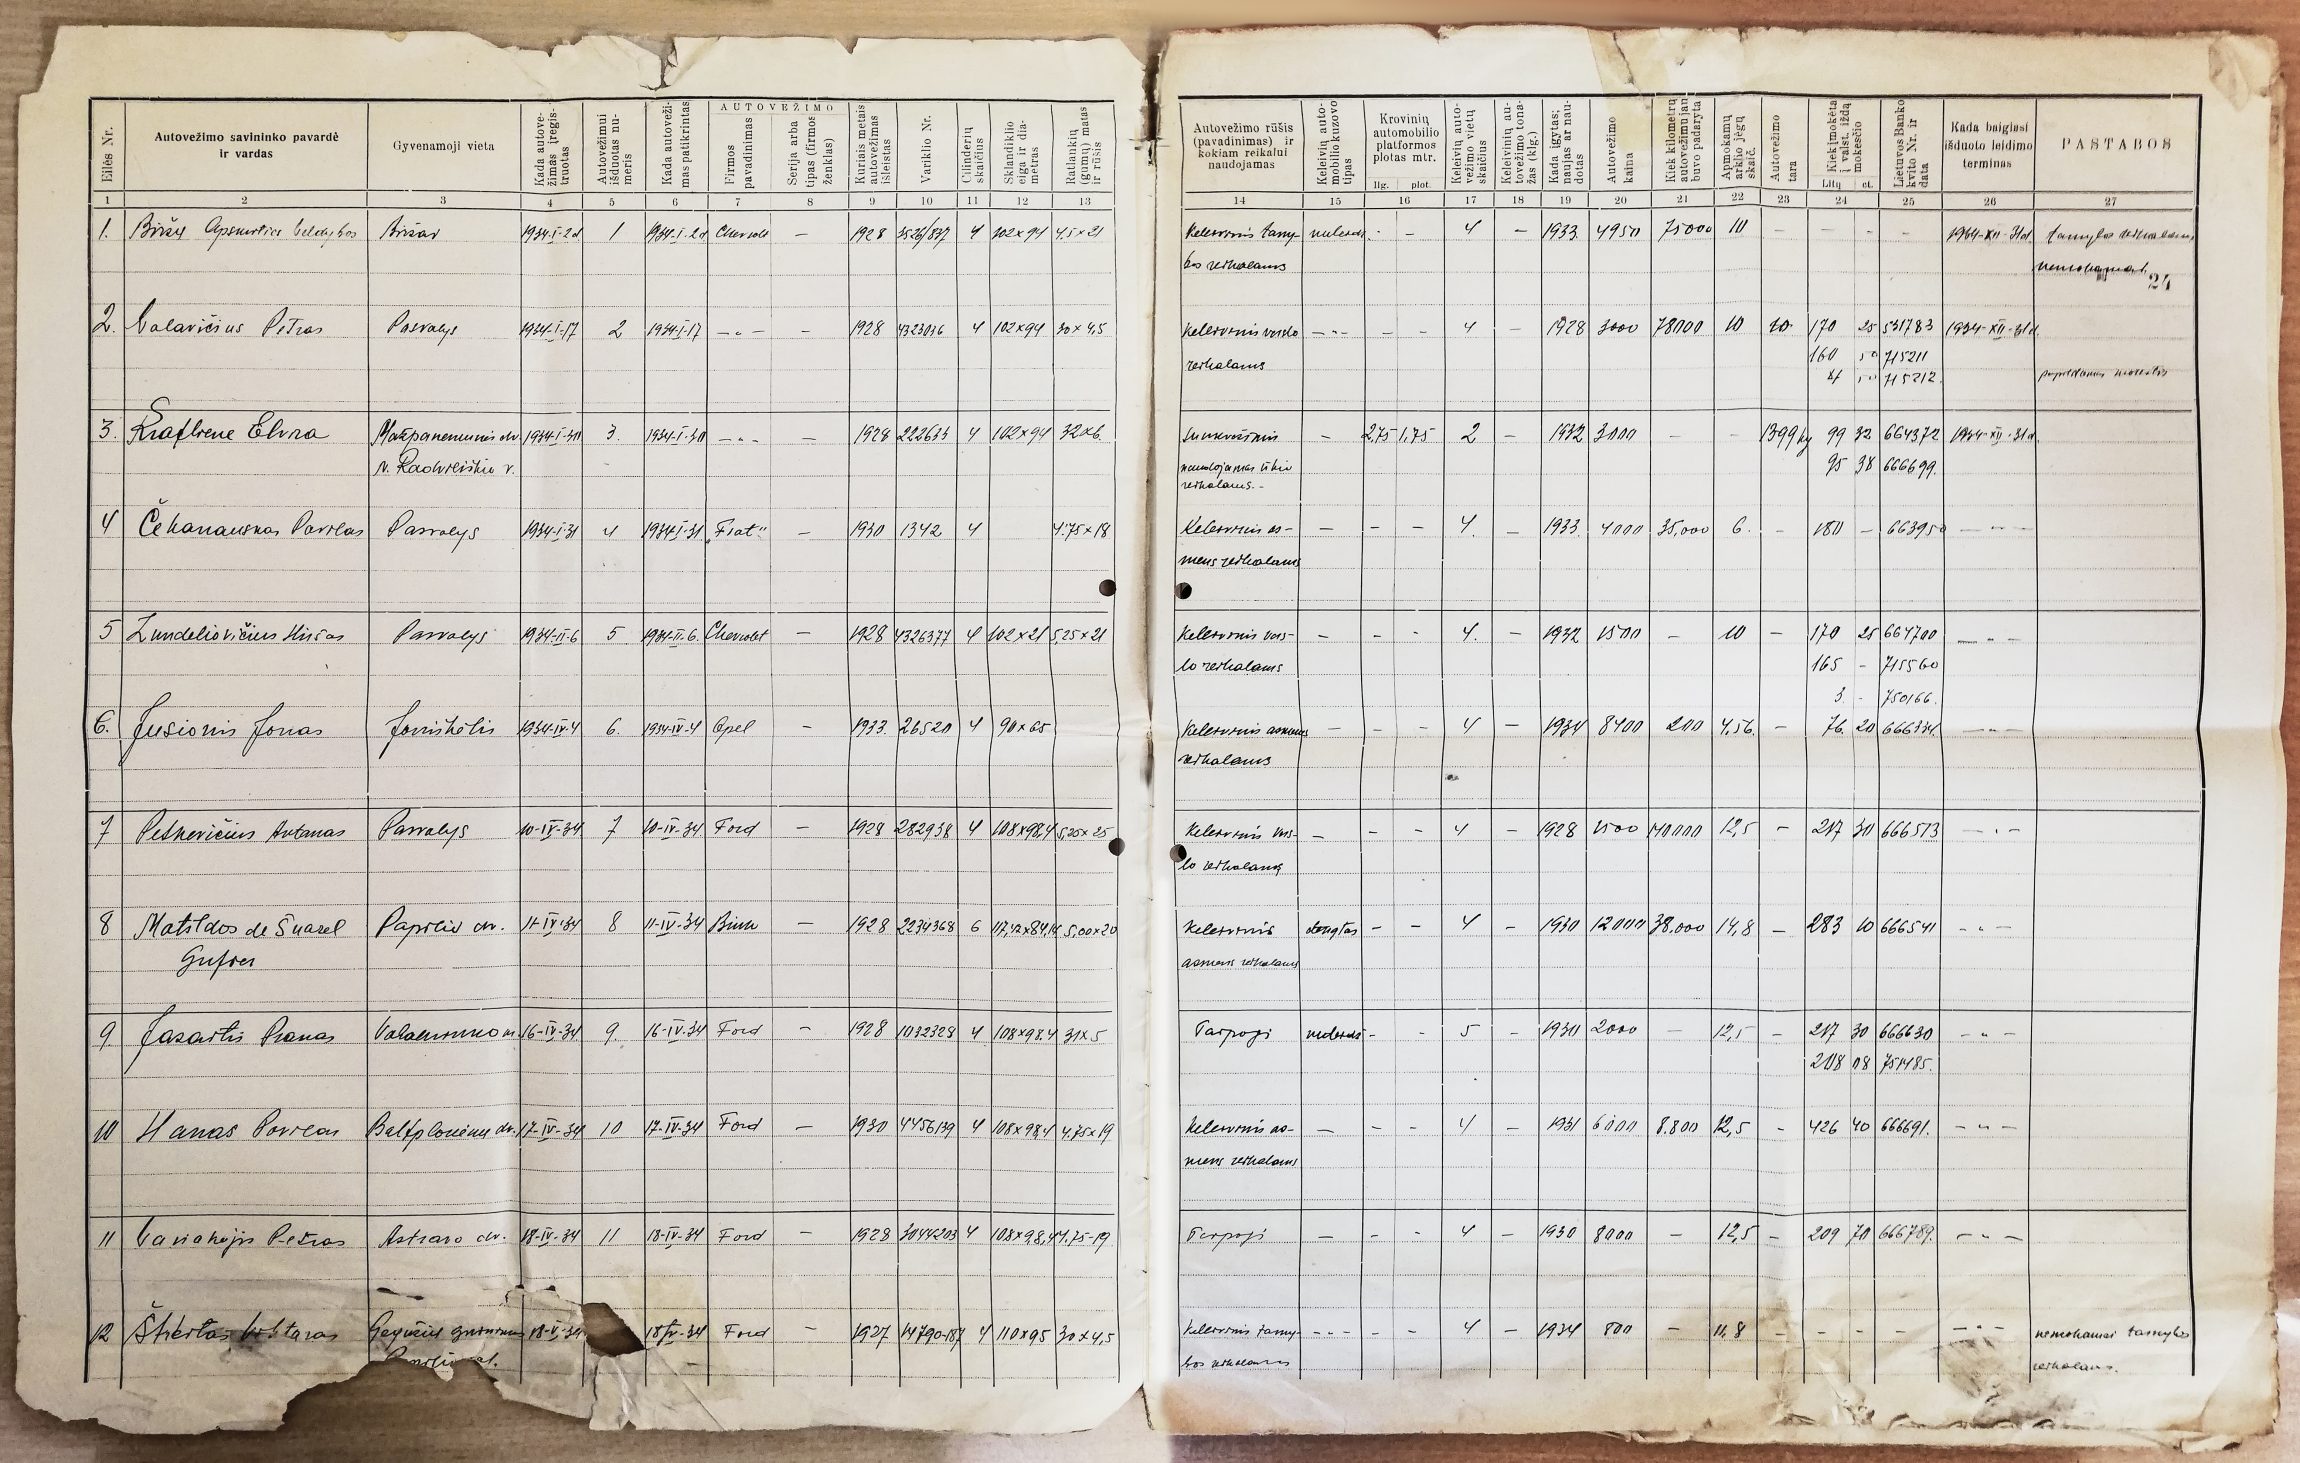 AUTOVEŽIMO
Eilės Nr.
Autovežimo savininko pavardė
ir vardas
Gyvenamoji vieta
Kada autove-
žimas įregis-
truotas
Autovežimui
išduotas nu-
meris
Kada autoveži-
mas patikrintas
Firmos
pavadinimas
Serija arba
tipas (firmos
ženklas)
Kuriais metais
autovežimas
išleistas
Variklio Nr.
Cilinderių
skaičius
Sklandiklio
eiga ir dia-
metras
Ratlankių
(gumų) matas
ir rūšis
1 2 3 4 5 6 7 8 9 10 11 12 13
1. Biržų Apskrities Valdybos Biržai 1934-I-2d 1 1934-I-2d Chevrolet — 1928 4 102×94 4,5×21
2. Petras Pasvalys 1934-I-17 2 1934-I-17 —„— — 1928 4323036 4 102×94 30×4,5
3. Elvira 1934-I-30 3. 1934-I-30 —„— — 1928 222633 4 102×94 32×6
v. Radviliškio v.
4 Čekanauskas Povilas Pasvalys 1934-I-31 4 1934-I-31 „Fiat" — 1930 1342 4 4.75×18
5 Zundeliovičius Hiršas Pasvalys 1934-II-6 5 1934-II-6. Chevrolet — 1928 4326377 4 102×21 5,25×21
6. Jusionis Jonas Joniškėlis 1934-IV-4 6. 1934-IV-4 Opel — 1933. 26520 4 90×65
7 Petkevičius Antanas Pasvalys 10-IV-34 7 10-IV-34 Ford — 1928 282938 4 108×98,4 5,25×25
8 Matildos de Papilio dv. 11-IV-34 8 11-IV-34 — 1928 2234368 6 5,00×20
9. Pranas 16-IV-34 9. 16-IV-34 Ford — 1928 1032328 4 108×98.4 31×5
10 Hanas Povilas 17-IV-34 10 17-IV-34 Ford — 1930 4456139 4 108×98,4 4.75×19
11 Petras Astravo dv. 18-IV-34 11 18-IV-34 Ford — 1928 3044203 4 108×98,4 4.75-19
12 18-V-34 Ford — 1927 4 110×95 30×4,5
Autovežimo rūšis
(pavadinimas) ir
kokiam reikalui
naudojamas
Keleivių auto-
mobilio kuzovo
tipas
Krovinių
automobilio
platformos
plotas mtr.
ilg. plot.
Keleivių auto-
vežimo vietų
skaičius
Keleivinių au-
tovežimo tona-
žas (klg.)
Kada įgytas;
naujas ar nau-
dotas
Autovežimo
kaina
Kiek kilometrų
autovežimu jau
buvo padaryta
Apmokamų
arklio jėgų
skaič.
Autovežimo
tara
Kiek įmokėta
į valst. iždą
mokesčio
Litų ct.
Lietuvos Banko
kvito Nr. ir
data
Kada baigiasi
išduoto leidimo
terminas
PASTABOS
14 15 16 17 18 19 20 21 22 23 24 25 26 27
Keleivinis tarny- - - 4 — 1933. 4950 75000 10 — — - - 1934-XII-31d. tarnybos reikalams
bos reikalams nemokamai
24
Keleivinis verslo —„— - - 4 — 1928 3000 78000 10 10. 170 25 531783 1934-XII-31d.
reikalams 160 50 715211
4 50 715212. papildomas mokestis
Sunkvežimis — 2,75 1,75 2 — 1932 3000 — — 1399 kg 99 32 664372 1934-XII-31d.
naudojamas ūkio 95 38 666699.
reikalams.-
Keleivinis as- — - - 4. — 1933. 4000 35,000 6. - 180 — 663950 —„—
mens reikalams
Keleivinis vers- — - - 4. — 1932 1500 — 10 — 170 25 664700 —„—
lo reikalams 165 - 715560
3 - 750166.
Keleivinis asmens — - - 4 — 1934 8400 200 4,56. — 76. 20 666334. —„—
reikalams
Keleivinis vers- — - - 4 — 1928 1500 140000 12,5 — 217 30 666513 —„—
lo reikalams
Keleivinis dengtas - - 4 — 1930 12000 38.000 14,8 — 283 10 666541 -„-
asmens reikalams
Taipogi - - 5 - 1930 2000 — 12,5 — 217 30 666630 -„-
208 08 751485.
Keleivinis as- — - - 4 — 1931 6000 8.800 12,5 - 426 40 666691. -„-
mens reikalams
Taipogi — - - 4 — 1930 8000 — 12,5 — 209 70 666789. -„-
Keleivinis tarny- -„- - - 4 — 1934 800 — 11,8 - - - - —„— nemokamai tarnybos
bos reikalams reikalams.